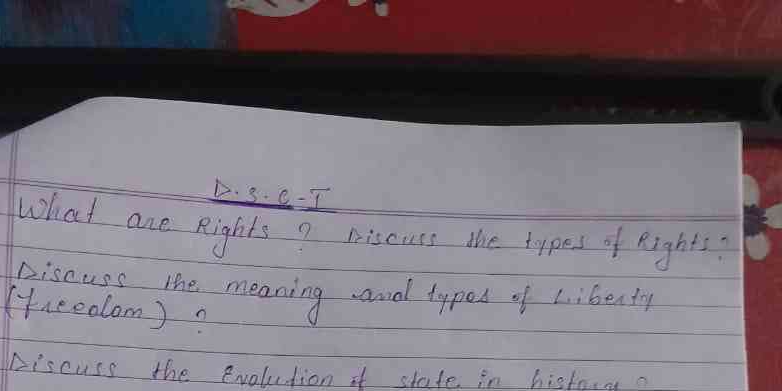 D.S.C-I
What are Rights? Discuss the types of Rights?
Discuss the meaning and types of Liberty
(freedom)?
Discuss the Evolution of state in history?